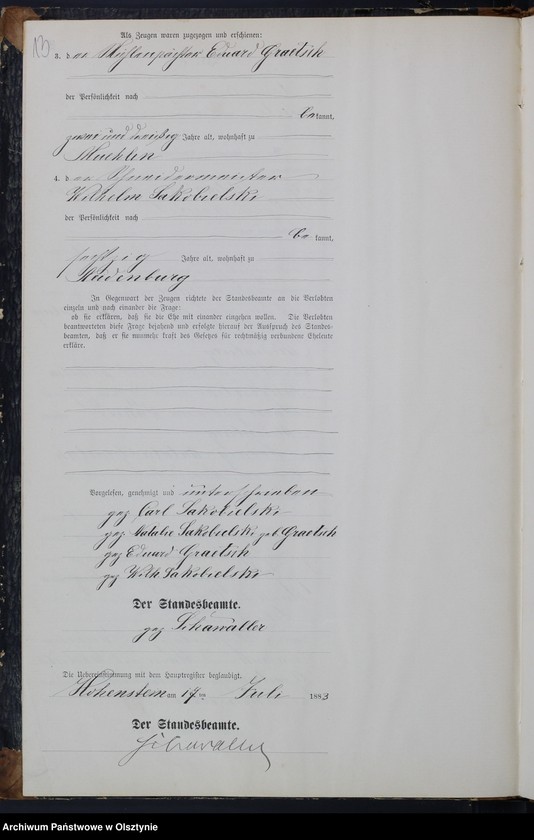 13
Als Zeugen waren zugezogen und erschienen:
3. der Mühlenpächter Eduard Graetsch
der Persönlichkeit nach
bekannt,
zwei und dreißig Jahre alt, wohnhaft zu
Muehlen
4. der Schneidermeister
Wilhelm Sakobielski
der Persönlichkeit nach
bekannt,
sechzig Jahre alt, wohnhaft zu
In Gegenwart der Zeugen richtete der Standesbeamte an die Verlobten
einzeln und nach einander die Frage:
ob sie erklären, daß sie die Ehe mit einander eingehen wollen. Die Verlobten
beantworteten diese Frage bejahend und erfolgte hierauf der Ausspruch des Standes-
beamten, daß er sie nunmehr kraft des Gesetzes für rechtmäßig verbundene Eheleute
erkläre.
Vorgelesen, genehmigt und unterschrieben
gez Carl Sakobielski
gez Natalie Sakobielski geb. Graetsch
gez Eduard Graetsch
gez Wilh Sakobielski
Der Standesbeamte.
gez Schawaller
Die Uebereinstimmung mit dem Hauptregister beglaubigt.
Hohenstein am 17ten Juli 1883
Der Standesbeamte.
Schawaller
Archiwum Państwowe w Olsztynie